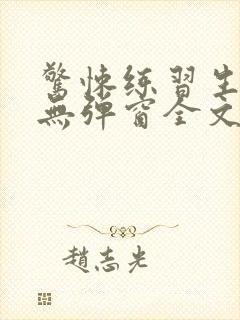 驚悚练習生
無彈窗全文
趙志光